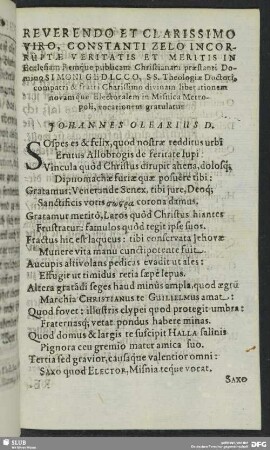 REVERENDO ET CLARISSIMO
VIRO, CONSTANTI ZELO INCOR-
RUPTÆ VERITATIS ET MERITIS IN
Ecclesiam Remque publicam Christianam præstanti Do-
mino SIMONI GEDICCO, SS. Theologiæ Doctori,
compatri & fratri Charissimo divinam liberationem
novamque Electoralem in Misnica Metro-
poli, vocationem gratulatur
JOHANNES OLEARIUS D.
SOspes es & felix, quod nostræ redditus urbi
Erutus Allobrogis de feritate lupi:
Vincula quòd Christus dirupit ahena, dolosq;
Dipnomachiæ furiæ quæ posuere tibi:
Gratamur, Venerande Senex, tibi jure, Deoq;
Sanctificis votis corona damus,
Gratamur meritò, Laros quòd Christus hiantes
Frustratur: famulos quòd tegit ipse suos.
Fractus hic est laqueus: tibi conservata Jehovæ
Munere vita manu cunctipotente fuit.
Aucupis altivolans pedicas evadit ut ales:
Effugit ut timidus retia sæpe lepus.
Altera gratandi seges haud minùs ampla, quod ægrũ
Marchia CHRISTIANUS te GUILIELMUS amat:
Quod fovet: illustris clypei quod protegit umbra:
Fraternasq; vetat pondus habere minas.
Quod domus & largis te suscipit HALLA salinis
Pignora ceu gremio mater amica suo.
Tertia sed gravior, causisque valentior omni:
SAXO quod ELECTOR, Misnia teque vocat.
SAXO
SLUB
DFG